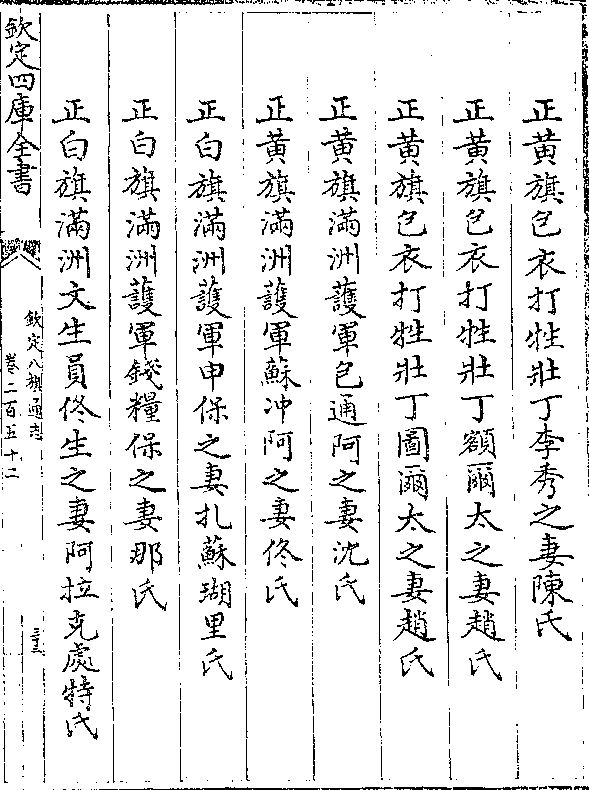 正黃旗包衣打牲壯丁李秀之妻陳氏
正黃旗包衣打牲壯丁額爾太之妻趙氏
正黃旗包衣打牲壯丁圖爾太之妻趙氏
正黃旗滿洲護軍包通阿之妻沈氏
正黃旗滿洲護軍蘇冲阿之妻佟氏
正白旗滿洲護軍申保之妻扎蘇瑚里氏
正白旗滿洲護軍錢糧保之妻那氏
正白旗滿洲文生員佟生之妻阿拉克處特氏
欽定四庫全書
欽定八旗通志
卷二百五十二